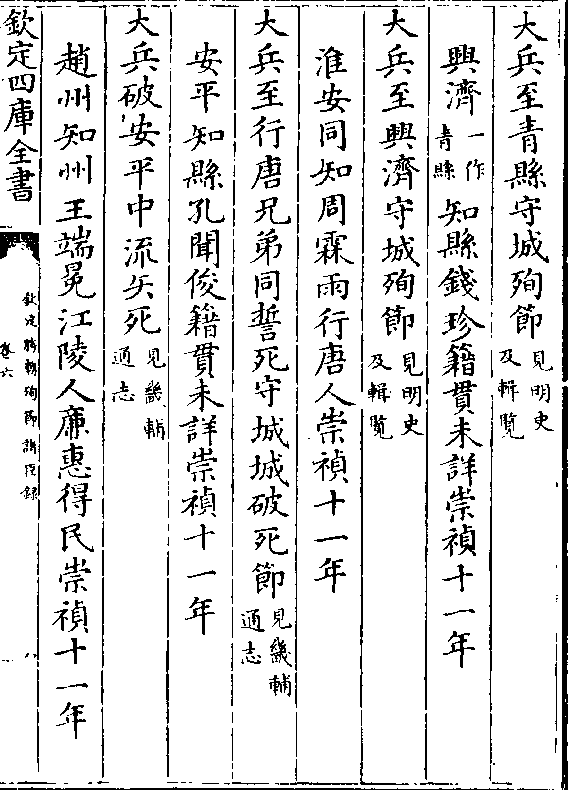 大兵至青縣守城殉節見明史及輯覽
興濟一作青縣知縣錢珍籍貫未詳崇禎十一年
大兵至興濟守城殉節見明史及輯覽
淮安同知周霖雨行唐人崇禎十一年
大兵至行唐兄弟同誓死守城城破死節見畿輔通志
安平知縣孔聞俊籍貫未詳崇禎十一年
大兵破安平中流矢死見畿輔通志
趙州知州王端冕江陵人廉惠得民崇禎十一年
欽定四庫全書
欽定勝朝殉節諸臣録
卷六
八